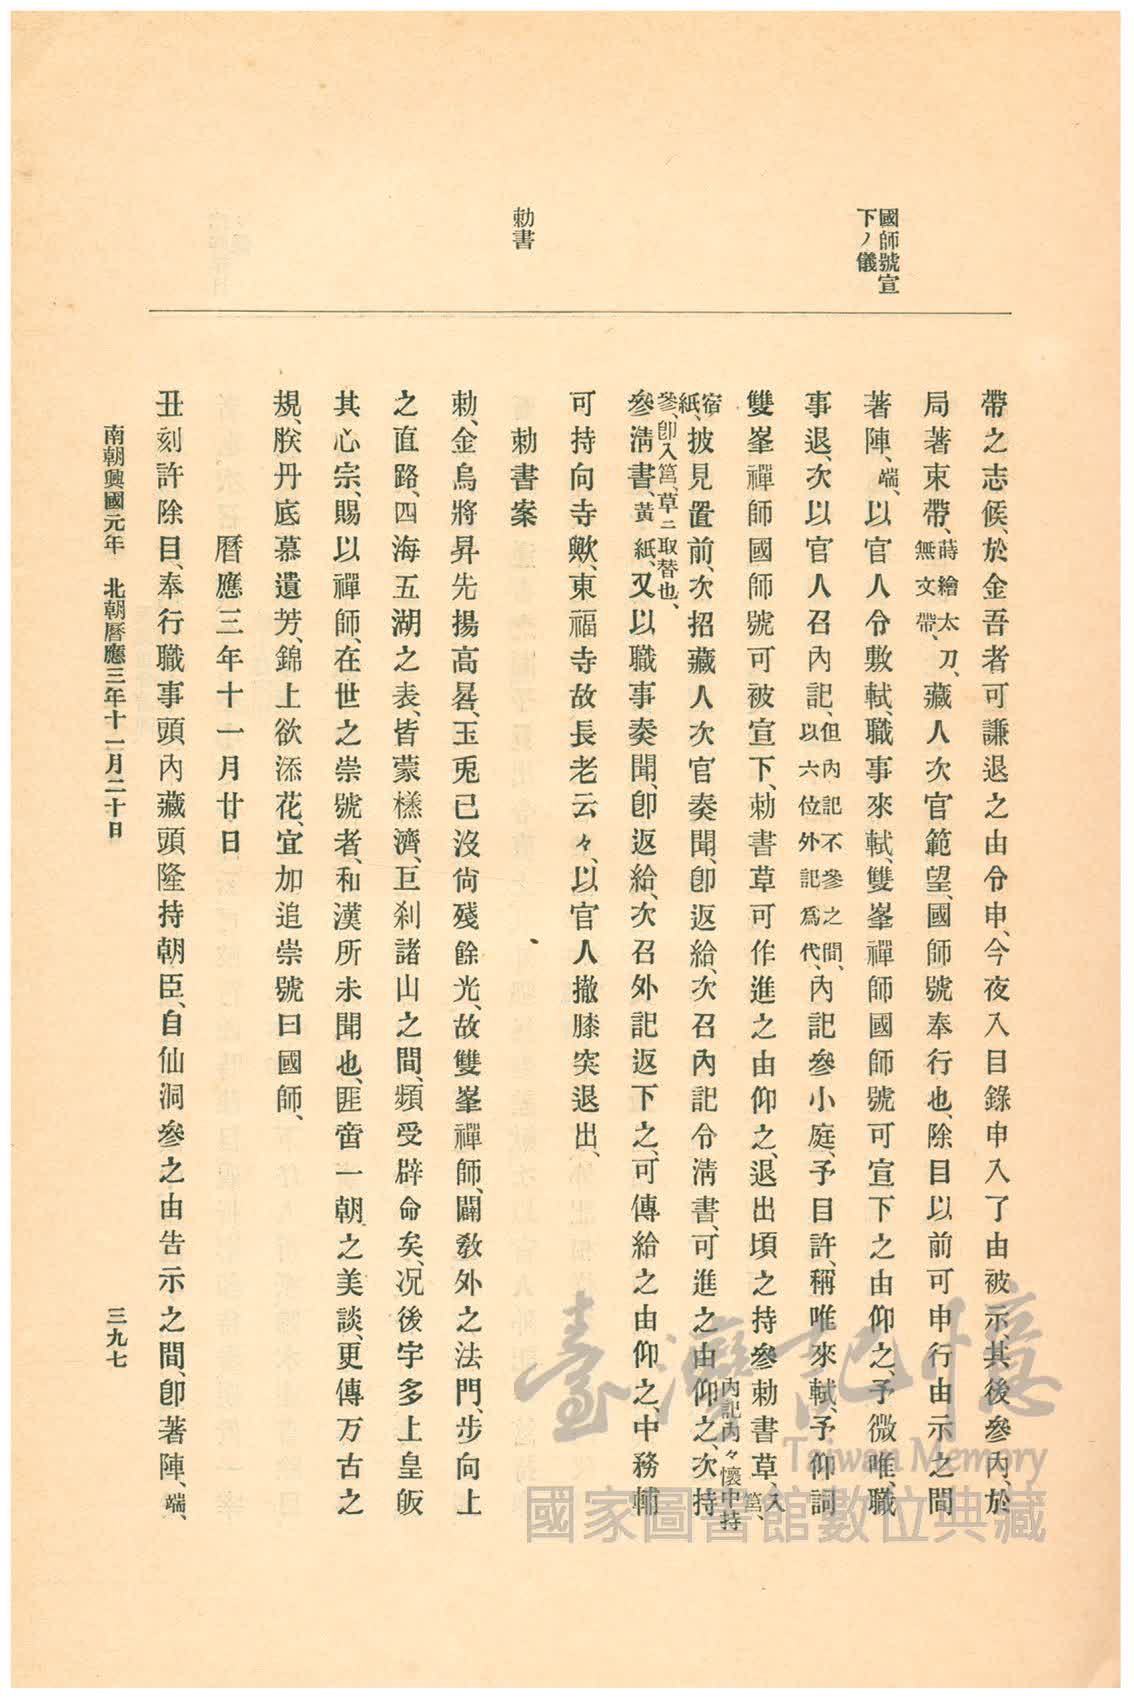 國師號宣
下ノ儀
勅書
帶之志候、於金吾者可謙退之由令申、今夜入目錄申入了由被示、其後參內、於
局著束帶、蒔繪太刀、無文帶、藏人次官範望、國師號奉行也、除目以前可申行由示之間
著陣、端、以官人令敷軾、職事來軾、雙峯禪師國師號可宣下之由仰之、予微唯、職
事退、次以官人召內記、但內記不參之間、以六位外記爲代、內記參小庭、予目許、稱唯來軾、予仰詞
雙峯禪師國師號可被宣下、勅書草可作進之由仰之、退出頃之持參勅書草、入筥、
宿紙、披見置前、次招藏人次官奏聞、卽返給、次召內記令淸書、可進之由仰之、次持 內記內々懷中持
參、卽入筥、草ニ取替也、
參淸書、黃紙、又以職事奏聞、卽返給、次召外記返下之、可傳給之由仰之、中務輔
可持向寺歟、東福寺故長老云々、以官人撤膝突退出、
勅書案
勅、金烏將昇先揚高晷、玉兎已沒尙殘餘光、故雙峯禪師、闢敎外之法門、步向上
之直路、四海五湖之表、皆蒙橃濟、巨刹諸山之間、頻受辟命矣、况後宇多上皇皈
其心宗、賜以禪師、在世之崇號者、和漢所未聞也、匪啻一朝之美談、更傳万古之
規、朕丹底慕遺芳、錦上欲添花、宜加追崇號曰國師、
曆應三年十一月廿日
丑刻許除目、奉行職事頭內藏頭隆持朝臣、自仙洞參之由告示之間、卽著陣、端、
南朝興國元年 北朝曆應三年十一月二十日
三九七
臺灣記憶
Taiwan Memory
國家圖書館數位典藏